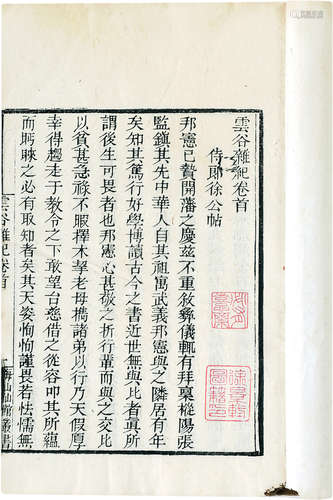 雲谷雜紀卷首
侍郎徐公帖
邦憲已贊開藩之慶茲不重敘彝儀輒有拜稟樅陽張
監鎮其先中華人自其祖寓武義邦憲與之隣居有年
矣知其篤行好學博讀古今之書近世無與比者真所
謂後生可畏者也邦憲心甚敬之折行輩而與之交比
以貧甚急祿不暇擇木挈老母攜諸弟以行乃天假厚
幸得趨走于教令之下敢望台慈借之從容叩其所蘊
而眄睞之必有取知者矣其天姿恂恂謹畏若怯懦無
雲谷雜紀卷首
海山仙館叢書